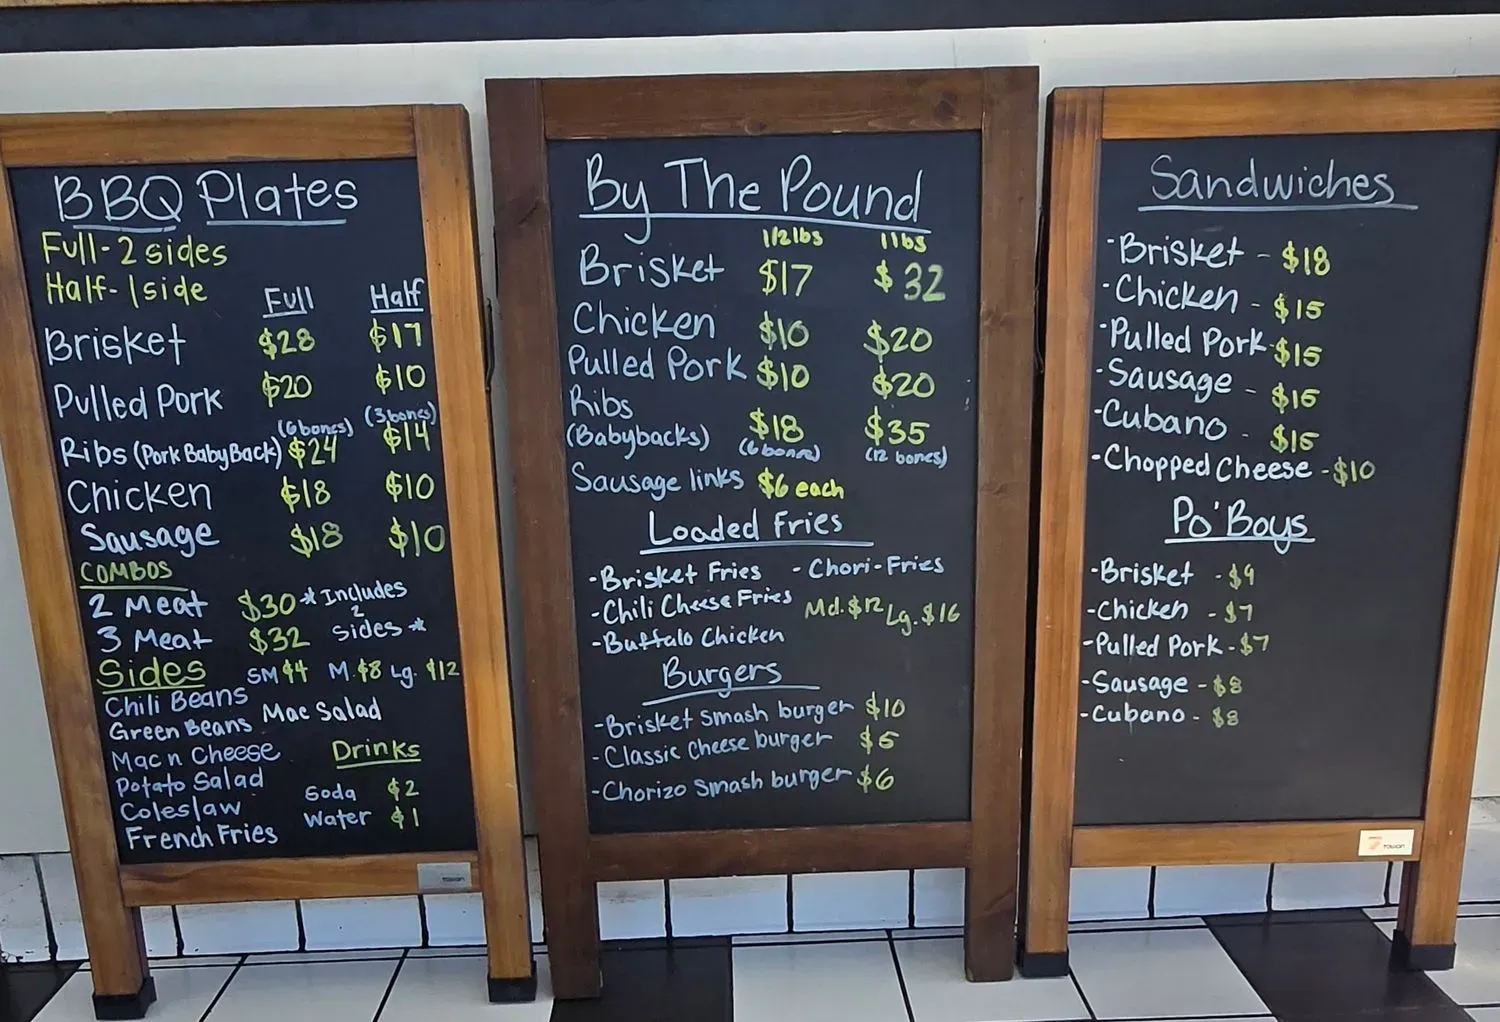 BBQ Plates
Full- 2 sides
Half- 1 side
Full Half
Brisket $28 $17
Pulled Pork $20 $10
(6 bones) (3 bones)
Ribs (Pork Baby Back) $24 $14
Chicken $18 $10
Sausage $18 $10
COMBOS
2 Meat $30 * Includes
3 Meat $32 2 sides *
Sides SM $4 M. $8 Lg. $12
Chili Beans
Green Beans Mac Salad
Mac n Cheese
Potato Salad
Coleslaw
French Fries
Drinks
Soda $2
Water $1
By The Pound
1/2 lbs 1 lbs
Brisket $17 $32
Chicken $10 $20
Pulled Pork $10 $20
Ribs
(Babybacks) $18 $35
(6 bones) (12 bones)
Sausage links $6 each
Loaded Fries
-Brisket Fries - Chori-Fries
-Chili Cheese Fries Md. $12 Lg. $16
-Buffalo Chicken
Burgers
-Brisket Smash burger $10
-Classic Cheese burger $5
-Chorizo Smash burger $6
Sandwiches
-Brisket - $18
-Chicken - $15
-Pulled Pork - $15
-Sausage - $15
-Cubano - $15
-Chopped Cheese - $10
Po' Boys
-Brisket - $9
-Chicken - $7
-Pulled Pork - $7
-Sausage - $8
-Cubano - $8